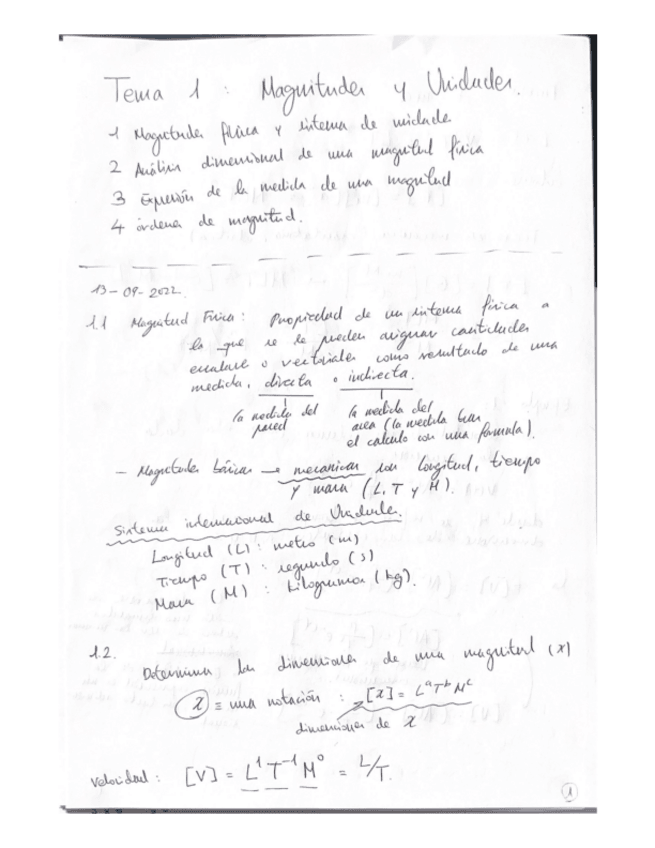 Tema 1 : Magnitudes y Unidades.
1 Magnitudes física y sistema de unidades
2 Análisis dimensional de una magnitud física
3 Expresión de la medida de una magnitud
4 órdenes de magnitud.
13-09-2022.
1.1 Magnitud Física : Propiedad de un sistema físico a
la que se le pueden asignar cantidades
escalares o vectoriales como resultado de una
medida, directa o indirecta.
la medida del
pared
la medida del
area (la medida tras
el calculo con una formula).
- Magnitudes básicas → mecánicas son longitud, tiempo
y masa (L, T y M).
Sistema internacional de Unidades.
Longitud (L) : metro (m)
Tiempo (T) : segundo (s)
Masa (M) : kilogramos (kg).
1.2.
Determinar las dimensiones de una magnitud (X)
X ≡ una notación : [X] = LᵃTᵇMᶜ
dimensiones de X
Velocidad : [V] = L¹ T⁻¹ M⁰ = L/T.
1